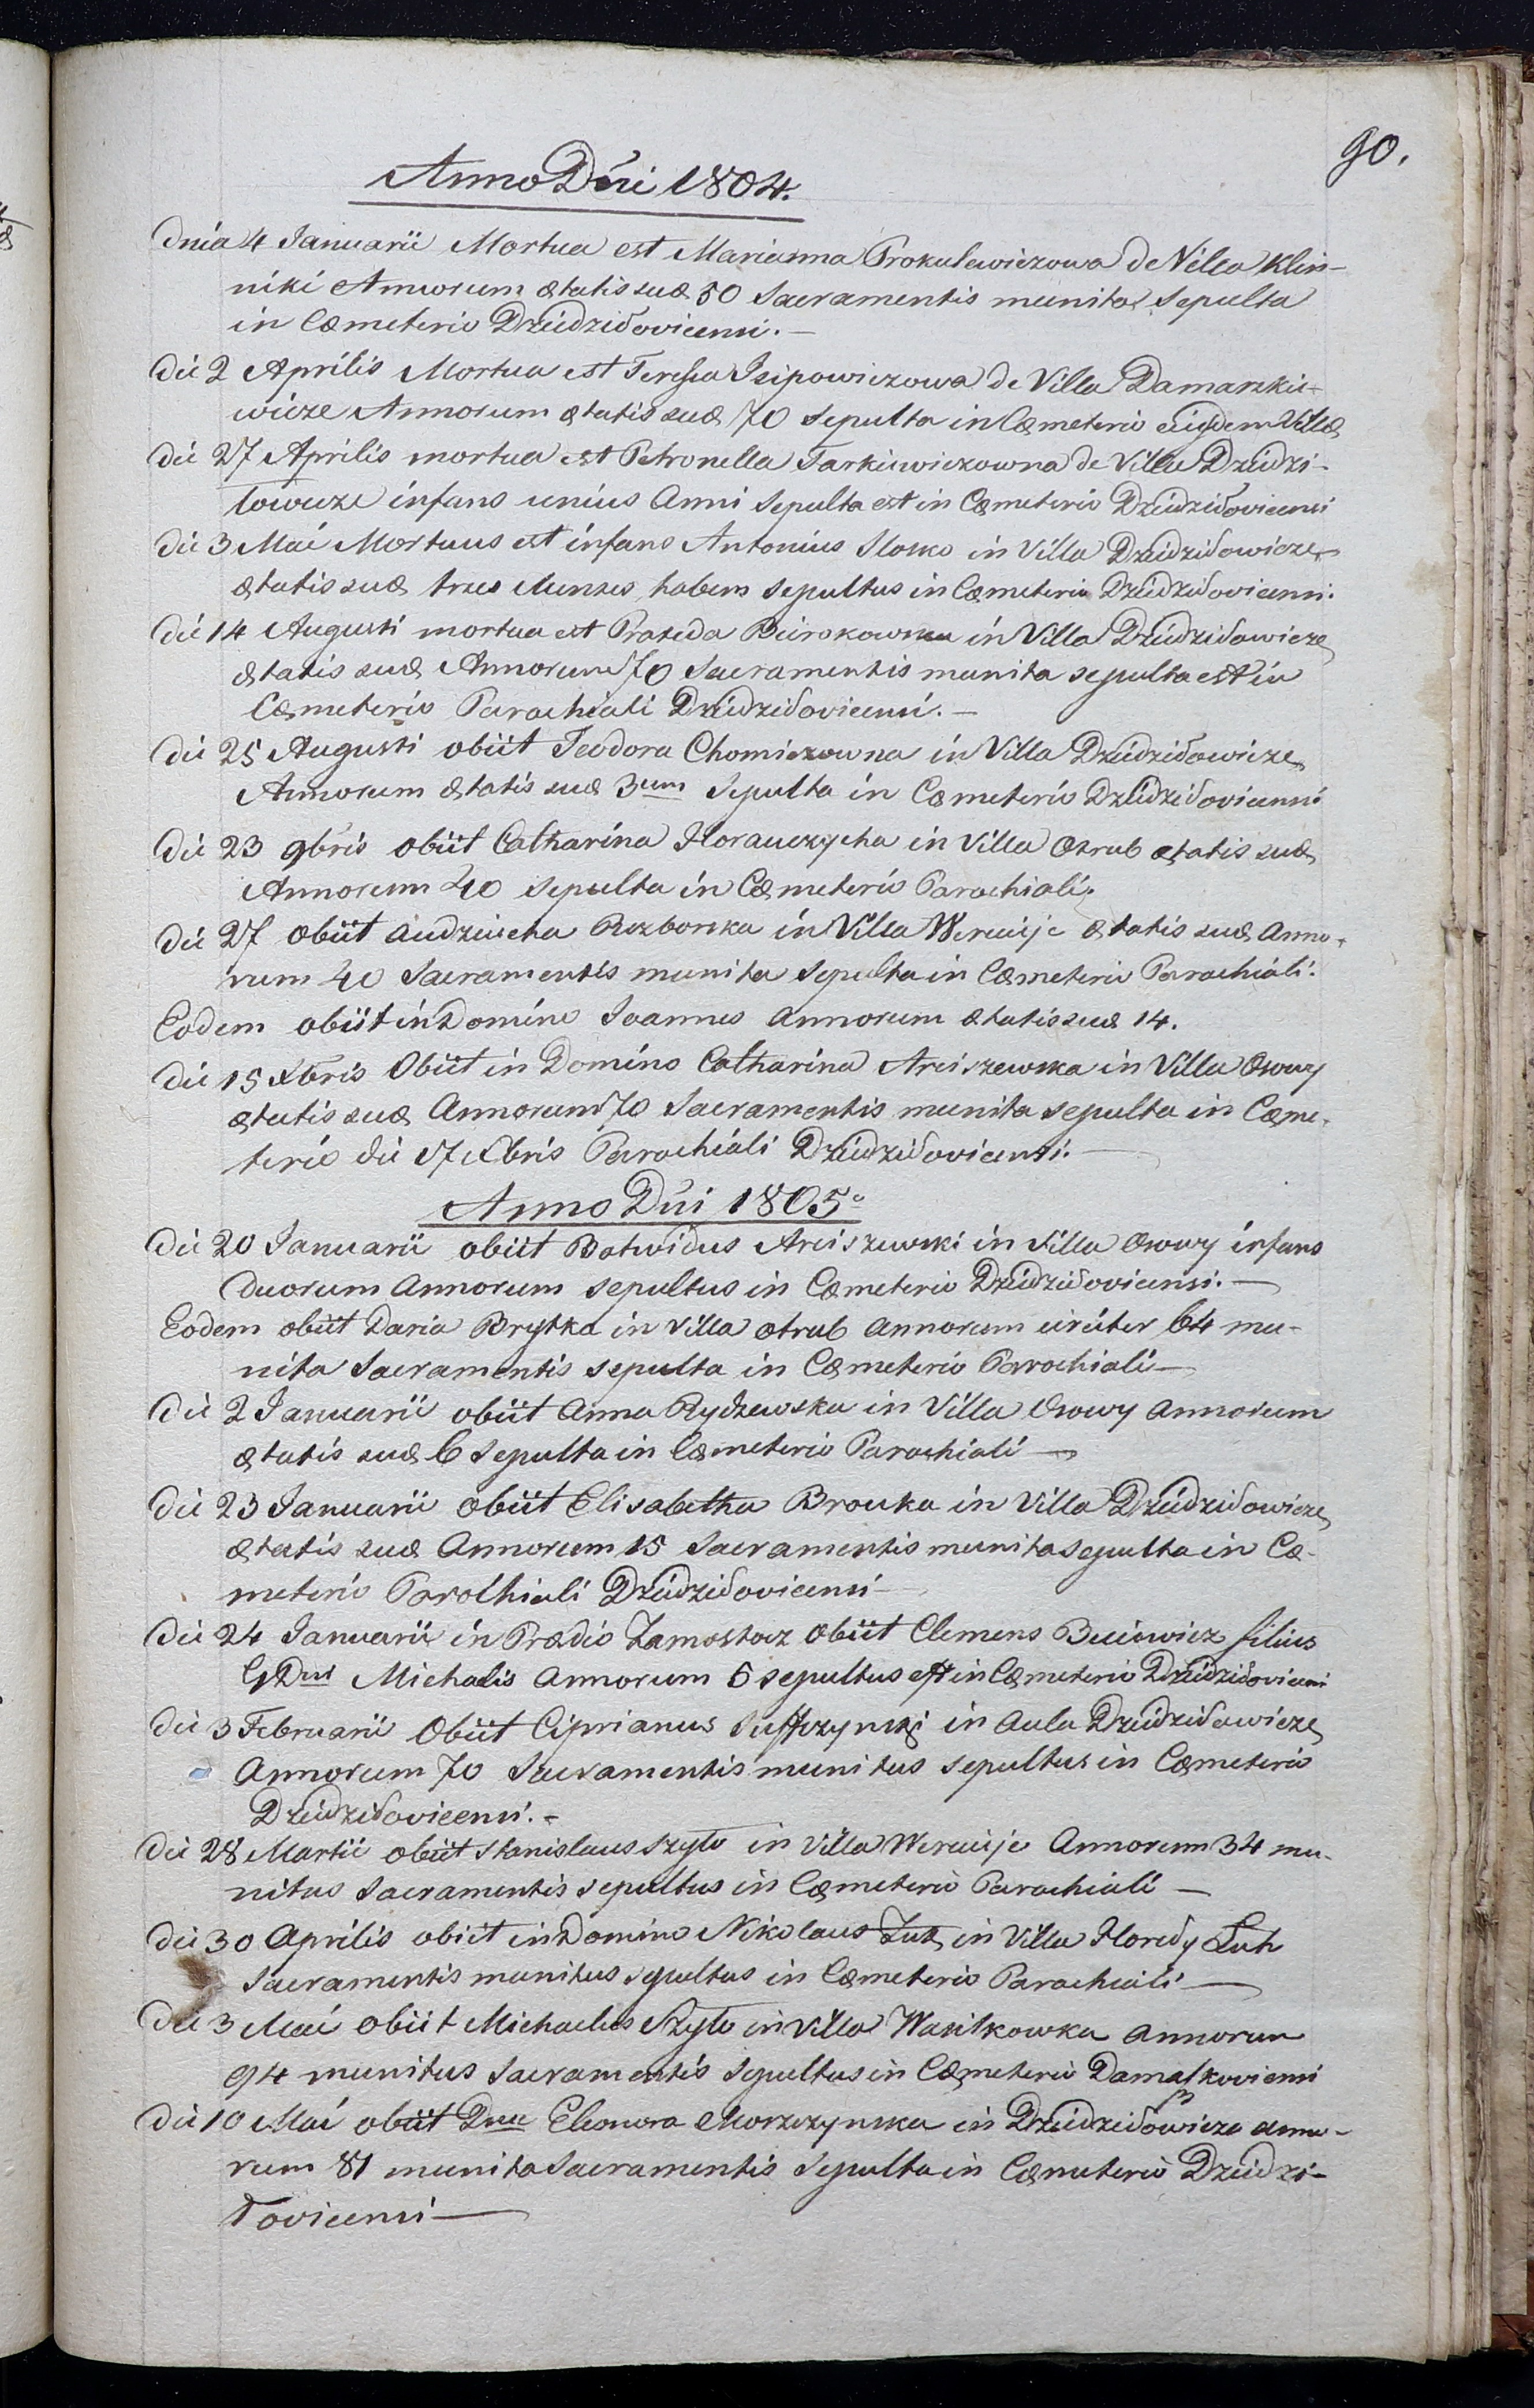 90.
Anno Dni 1804.
Dnia 4 Januarii Mortua est Marianna Prokulewiczowa de Villa Klin-
niki Annorum ætatis suæ 50 Sacramentis munita Sepulta
in Cæmeterio Dziudziłovicensi. —
Die 2 Aprilis Mortua est Teressa Isipowiczowa de Villa Damaszkie-
wicze Annorum ætatis suæ 70 Sepulta in Cæmeterio eiusdem Villæ
Die 27 Aprilis mortua est Petronella Tarkiewiczowna de Villa Dziudzi-
łowicze infans unius Anni Sepulta est in Cæmeterio Dziudziłovicensi
Die 3 Mai Mortuus est infans Antonius Slosko in Villa Dziudziłowicze
ætatis suæ tres Menses habens Sepultus in Cæmeterio Dziudziłovicensi.
Die 14 Augusti mortua est Praxeda in Villa Dziudziłowicze
ætatis suæ Annorum 70 Sacramentis munita sepulta est in
Cæmeterio Parochiali Dziudziłovicensi. —
Die 25 Augusti obiit Teodora Chomiczowna in Villa Dziudziłowicze
Annorum ætatis suæ 3um Sepulta in Cæmeterio Dziudziłovicensi
Die 23 9bris obiit Catharina Horauczycha in Villa Otrub ætatis suæ
Annorum 40 sepulta in Cæmeterio Parochiali.
Die 27 obiit Audziucha Rozborska in Villa Wereiije ætatis suæ Anno-
rum 40 Sacramentis munita Sepulta in Cæmeterio Parochiali.
Eodem obiit in Domino Joannes Annorum ætatis suæ 14.
Die 15 Xbris Obiit in Domino Catharina Arciszewska in Villa Osowy
ætatis suæ Annorum 70 Sacramentis munita sepulta in Cæme-
terio die 17 Xbris Parochiali Dziudziłovicensi. —
Anno Dni 1805o
Die 20 Januarii obiit Botwidus Arciszewski in Villa Osowy infans
duorum Annorum sepultus in Cæmeterio Dziudziłovicensi. —
Eodem obiit Daria Brytka in Villa otrub annorum circiter 64 mu-
nita Sacramentis sepulta in Cæmeterio Parochiali —
Die 2 Januarii obiit Anna Rydzewska in Villa Osowy Annorum
ætatis suæ 6 Sepulta in Cæmeterio Parochiali —
Die 23 Januarii obiit Elisabetha Brouka in Villa Dziudziłowicze
ætatis suæ Annorum 15 Sacramentis munita sepulta in Cæ-
meterio Parochiali Dziudziłovicensi —
Die 24 Januarii in Prædio Zamostocz Obiit Clemens Buiewicz filius
G Dni Michaelis Annorum 5 sepultus est in Cæmeterio Dziudziłovicensi
Die 3 Februarii Obiit Ciprianus Suffczynski in Aula Dziudziłowicze
Annorum 70 Sacramentis munitus sepultus in Cæmeterio
Dziudziłovicensi. —
Die 28 Martii obiit Stanislaus Szyło in Villa Wereiije Annorum 34 mu-
nitus Sacramentis sepultus in Cæmeterio Parochiali —
Die 30 Aprilis obiit in Domino Nikolaus Zuk in Villa Horody Luh
Sacramentis munitus sepultus in Cæmeterio Parochiali —
Die 3 Mai obiit Michaelus Szyło in Villa Wasilkowka annorum
94 munitus Sacramentis sepultus in Cæmeterio Damaskovicensi
Die 10 Mai obiit Dna Eleonora Morszczynska in Dziudziłowicze anno-
rum 81 munita Sacramentis Sepulta in Cæmeterio Dziudzi-
łovicensi —